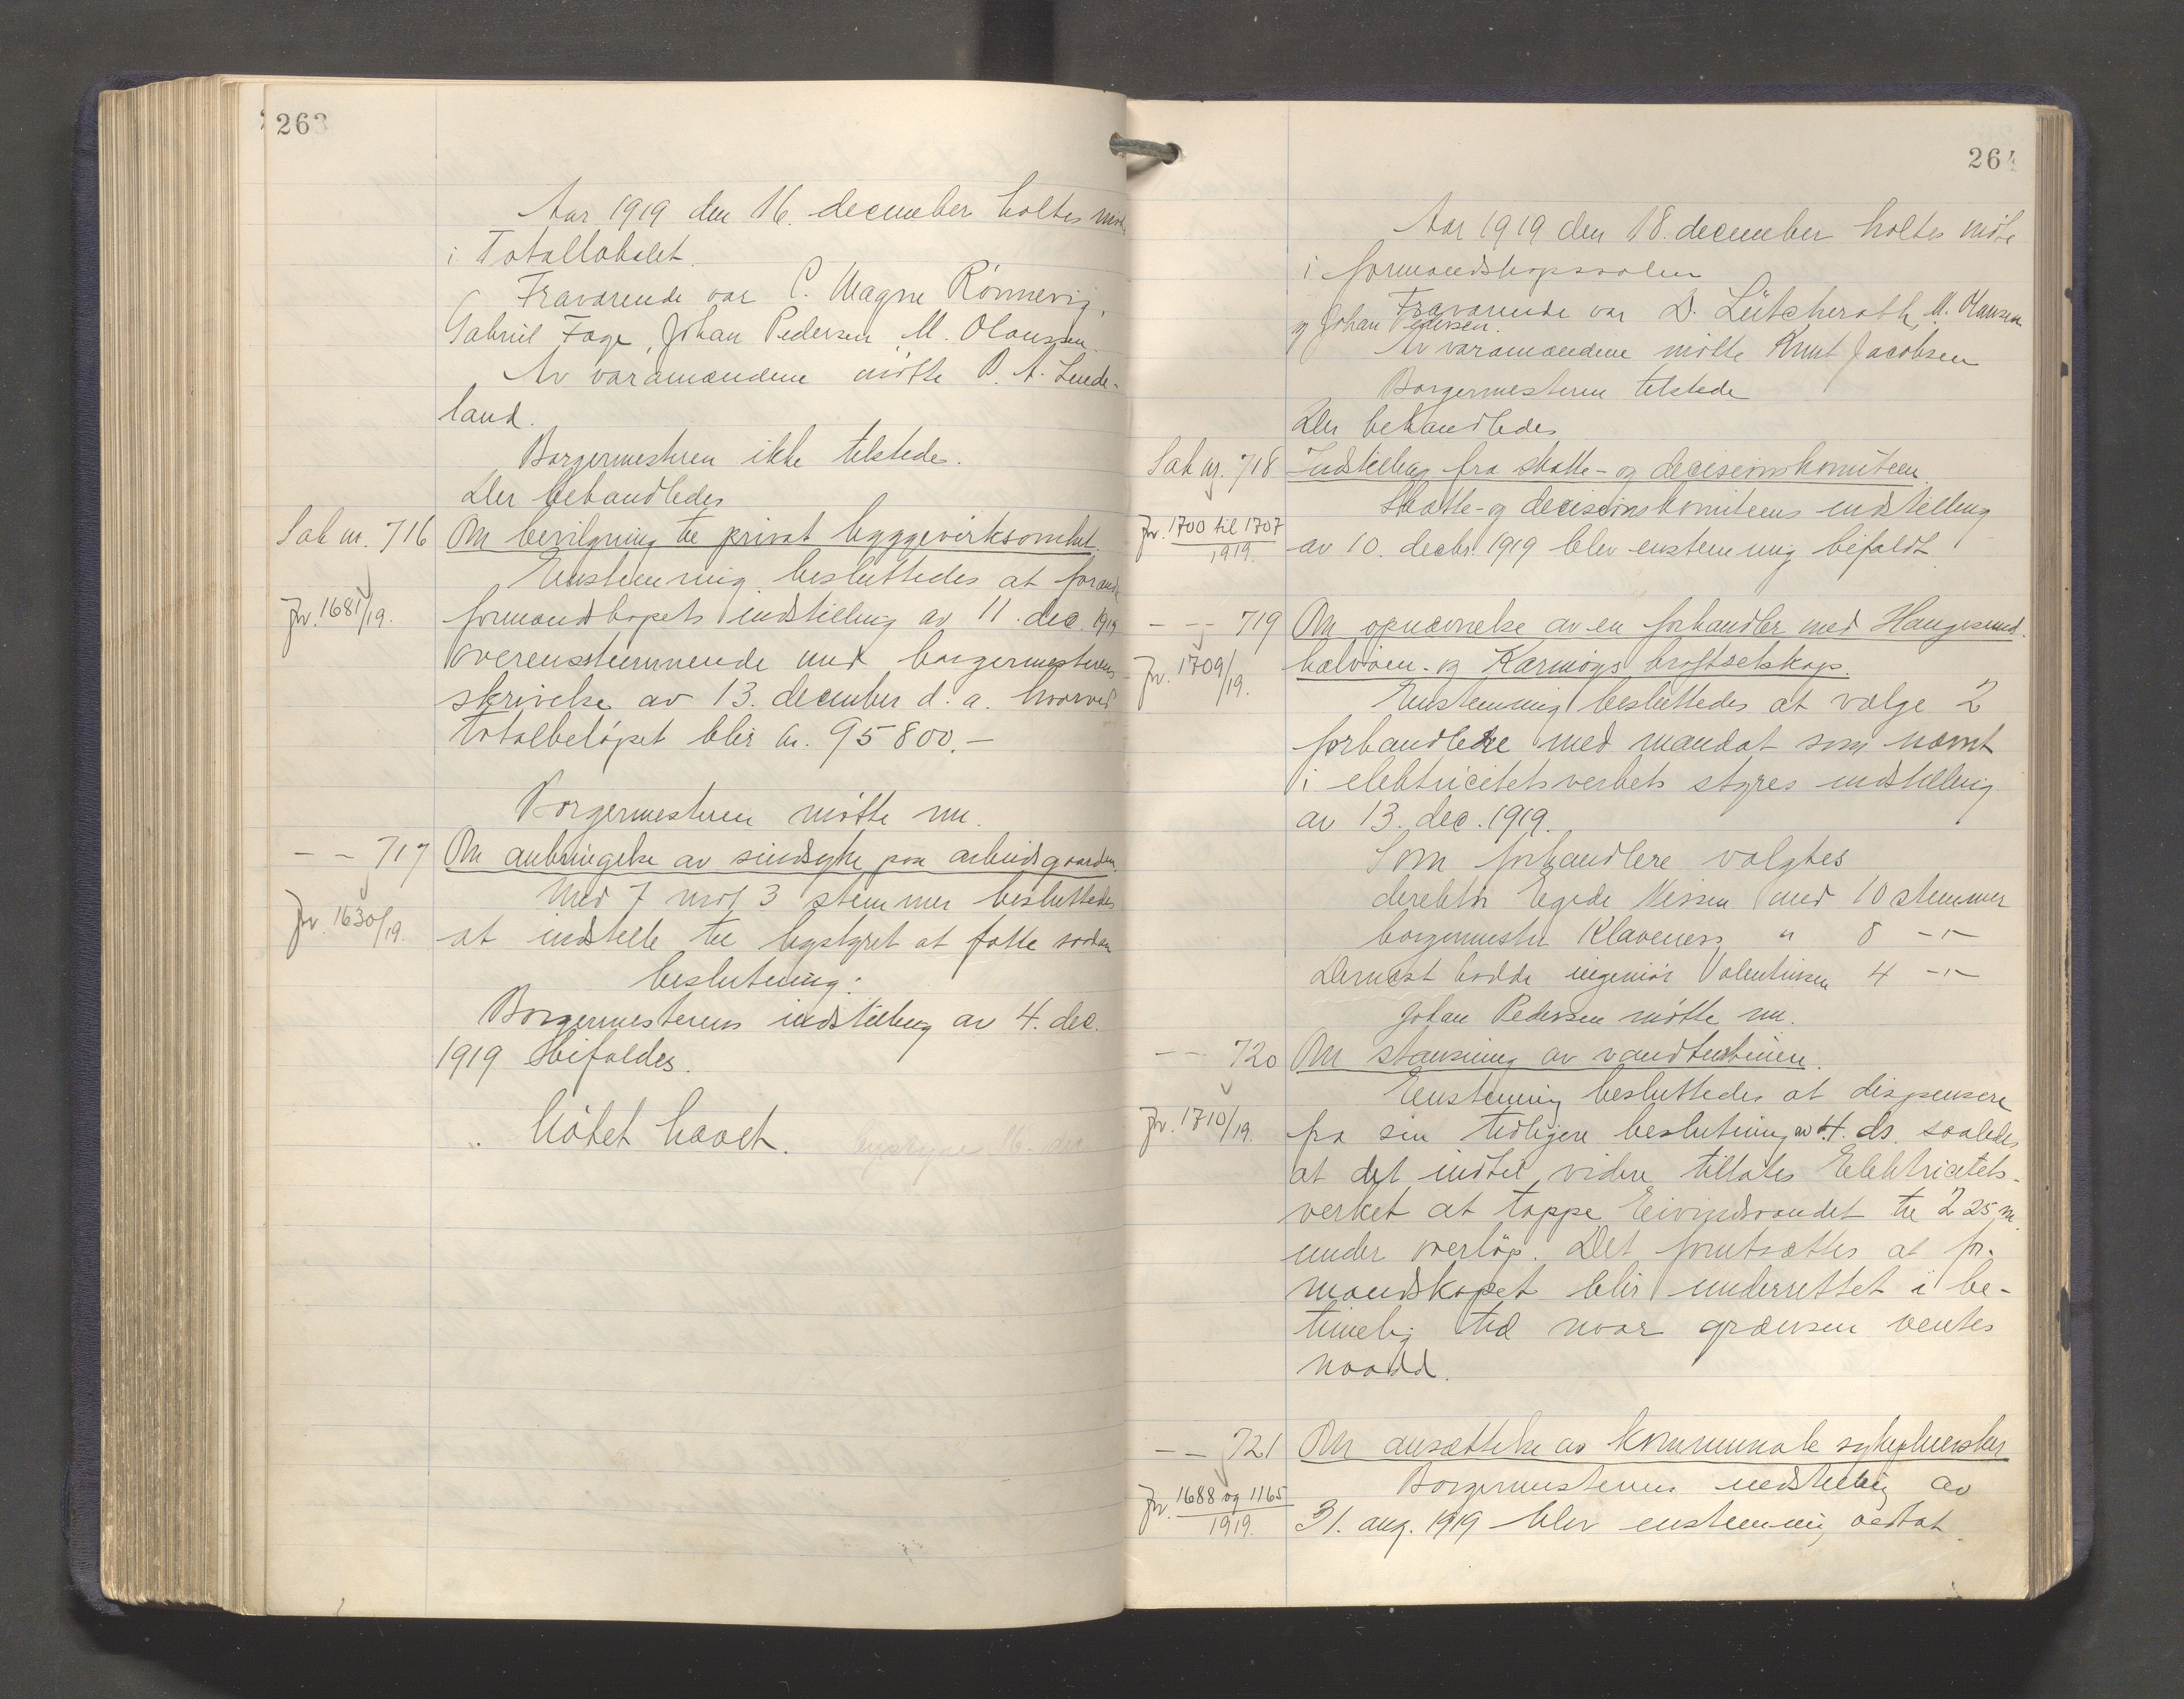 263
Aar 1919 den 16. december holtes møte
i Totallokalet.
Fraværende var C. Magne Rönnevig,
Gabriel Fage, Johan Pedersen, M. Olaussen.
Av varamændene mötte P. A. Lende-
land.
Borgermesteren ikke tilstede.
Der behandledes
Sak nr. 716 Om bevilgning til privat byggevirksomhet.
Jnr. 1681/19.
Enstemmig besluttedes at forandre
formandskapets indstilling av 11. dec. 1919
overensstemmende med borgermesterens
skrivelse av 13. december d. a. hvorved
totalbelöpet blir kr. 95800.-
Borgermesteren mötte nu.
- - 717 Om anbringelse av sindsyke paa arbeidsgaarden.
Jnr. 1630/19.
Med 7 mot 3 stemmer besluttedes
at indstille til bystyret at fatte saadan
beslutning:
Borgermesterens indstilling av 4. dec.
1919 bifaldes.
Mötet hævet.
264
Aar 1919 den 18. december holtes möte
i formandskapssalen
Fraværende var D. Lütcherath, M. Olausen
og Johan Pedersen.
Av varamændene mötte Knut Jacobsen
Borgermesteren tilstede
Der behandledes
Sak nr. 718 Indstilling fra skatte- og decisionskomiteen.
Jnr. 1700 til 1707
1919.
Skatte- og decisionskomiteens indstilling
av 10. decbr. 1919 blev enstemmig bifaldt.
- - 719 Om opnævnelse av en forhandler med Haugesund-
Jnr. 1709/19.
halvöen- og Karmöys kraftselskap.
Enstemmig besluttedes at vælge 2
forhandlere med mandat som nævnt
i elektricitetsverkets styres indstilling
av 13. dec. 1919.
Som forhandlere valgtes
direktör Egede Nissen med 10 stemmer
borgermester Klaveness " 8 -"-
Dernæst hadde ingeniör Valentinsen 4 -"-
Johan Pedersen mötte nu.
- - 720 Om stansning av vandturbinen.
Jnr. 1710/19.
Enstemmig besluttedes at dispensere
fra sin tidligere beslutning av 4. ds. saaledes
at det indtil videre tillates Elektricitets-
verket at tappe Eivindsvandet til 2.25 m.
under overlöp. Det forutsættes at for-
mandskapet blir underrettet i be-
timelig tid naar grænsen ventes
naadd.
- - 721 Om ansættelse av kommunale sykepleiersker
Jnr. 1688 og 1165
1919.
Borgermesterens indstilling av
31. aug. 1919 blev enstemmig vedtat.